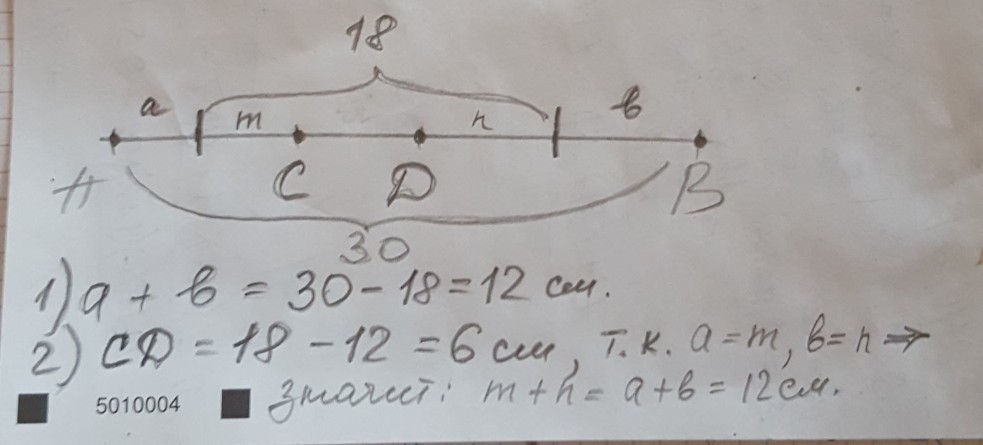 18
a m n в
A C D B
30
1) a + в = 30 - 18 = 12 см.
2) CD = 18 - 12 = 6 см, т.к. a = m, в = n ⇒
значит: m + n = a + в = 12 см.
5010004